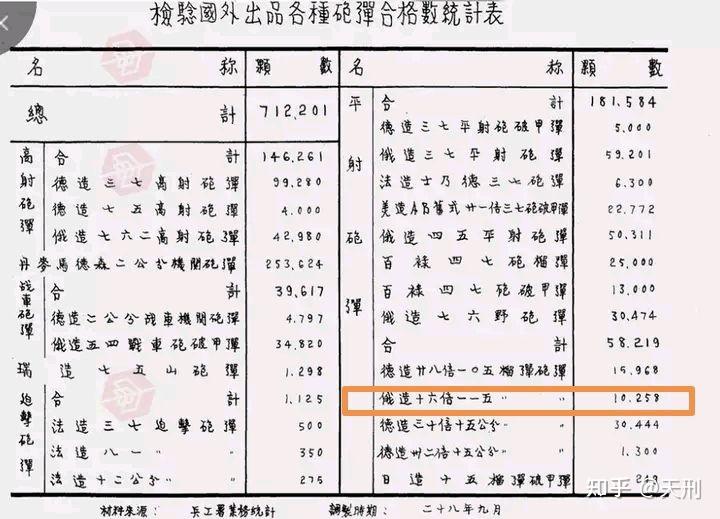 檢驗國外出品各種砲彈合格數統計表
名 称 顆 數
總 計 712,201
高射砲彈
合 計 146,261
德造三七高射砲彈 99,280
德造七五高射砲彈 4,000
俄造七六二高射砲彈 42,980
丹麥馬德森二公分機関砲彈 253,624
战車砲彈
合 計 39,617
德造二公分战車機関砲彈 4,797
俄造五四戰車砲破甲彈 34,820
瑞造七五山砲彈 1,298
迫擊砲彈
合 計 1,125
法造三七迫擊砲彈 500
法造八一 〃 350
法造十二公分 〃 275
名 称 顆 數
平射砲彈
合 計 181,584
德造三七平射砲破甲彈 5,000
俄造三七平射彈 59,201
法造士乃德三七砲彈 6,300
美造AB舊式廿一倍三七砲破甲彈 22,772
俄造四五平射砲彈 50,311
百祿四七砲榴彈 25,000
百祿四七砲破甲彈 13,000
俄造七六野砲彈 30,474
合 計 58,219
德造廿八倍一〇五榴彈砲彈 15,968
俄造十六倍一一五 〃 〃 10,258
德造三十倍十五公分 〃 〃 30,444
德造卅二倍十五公分 〃 〃 1,300
日造十五榴彈砲破甲彈 249
材料來源： 兵工署業務統計 調製時期： 二十八年九月
知乎 @天刑